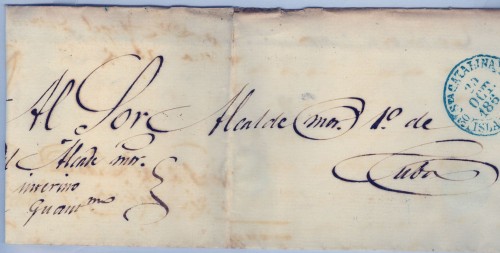 Al Sor. Alcalde mor. 1º. de
Cuba
el Alcde. mor.
interino
Guantmo
STA CATALINA
20
OCT
ISLA